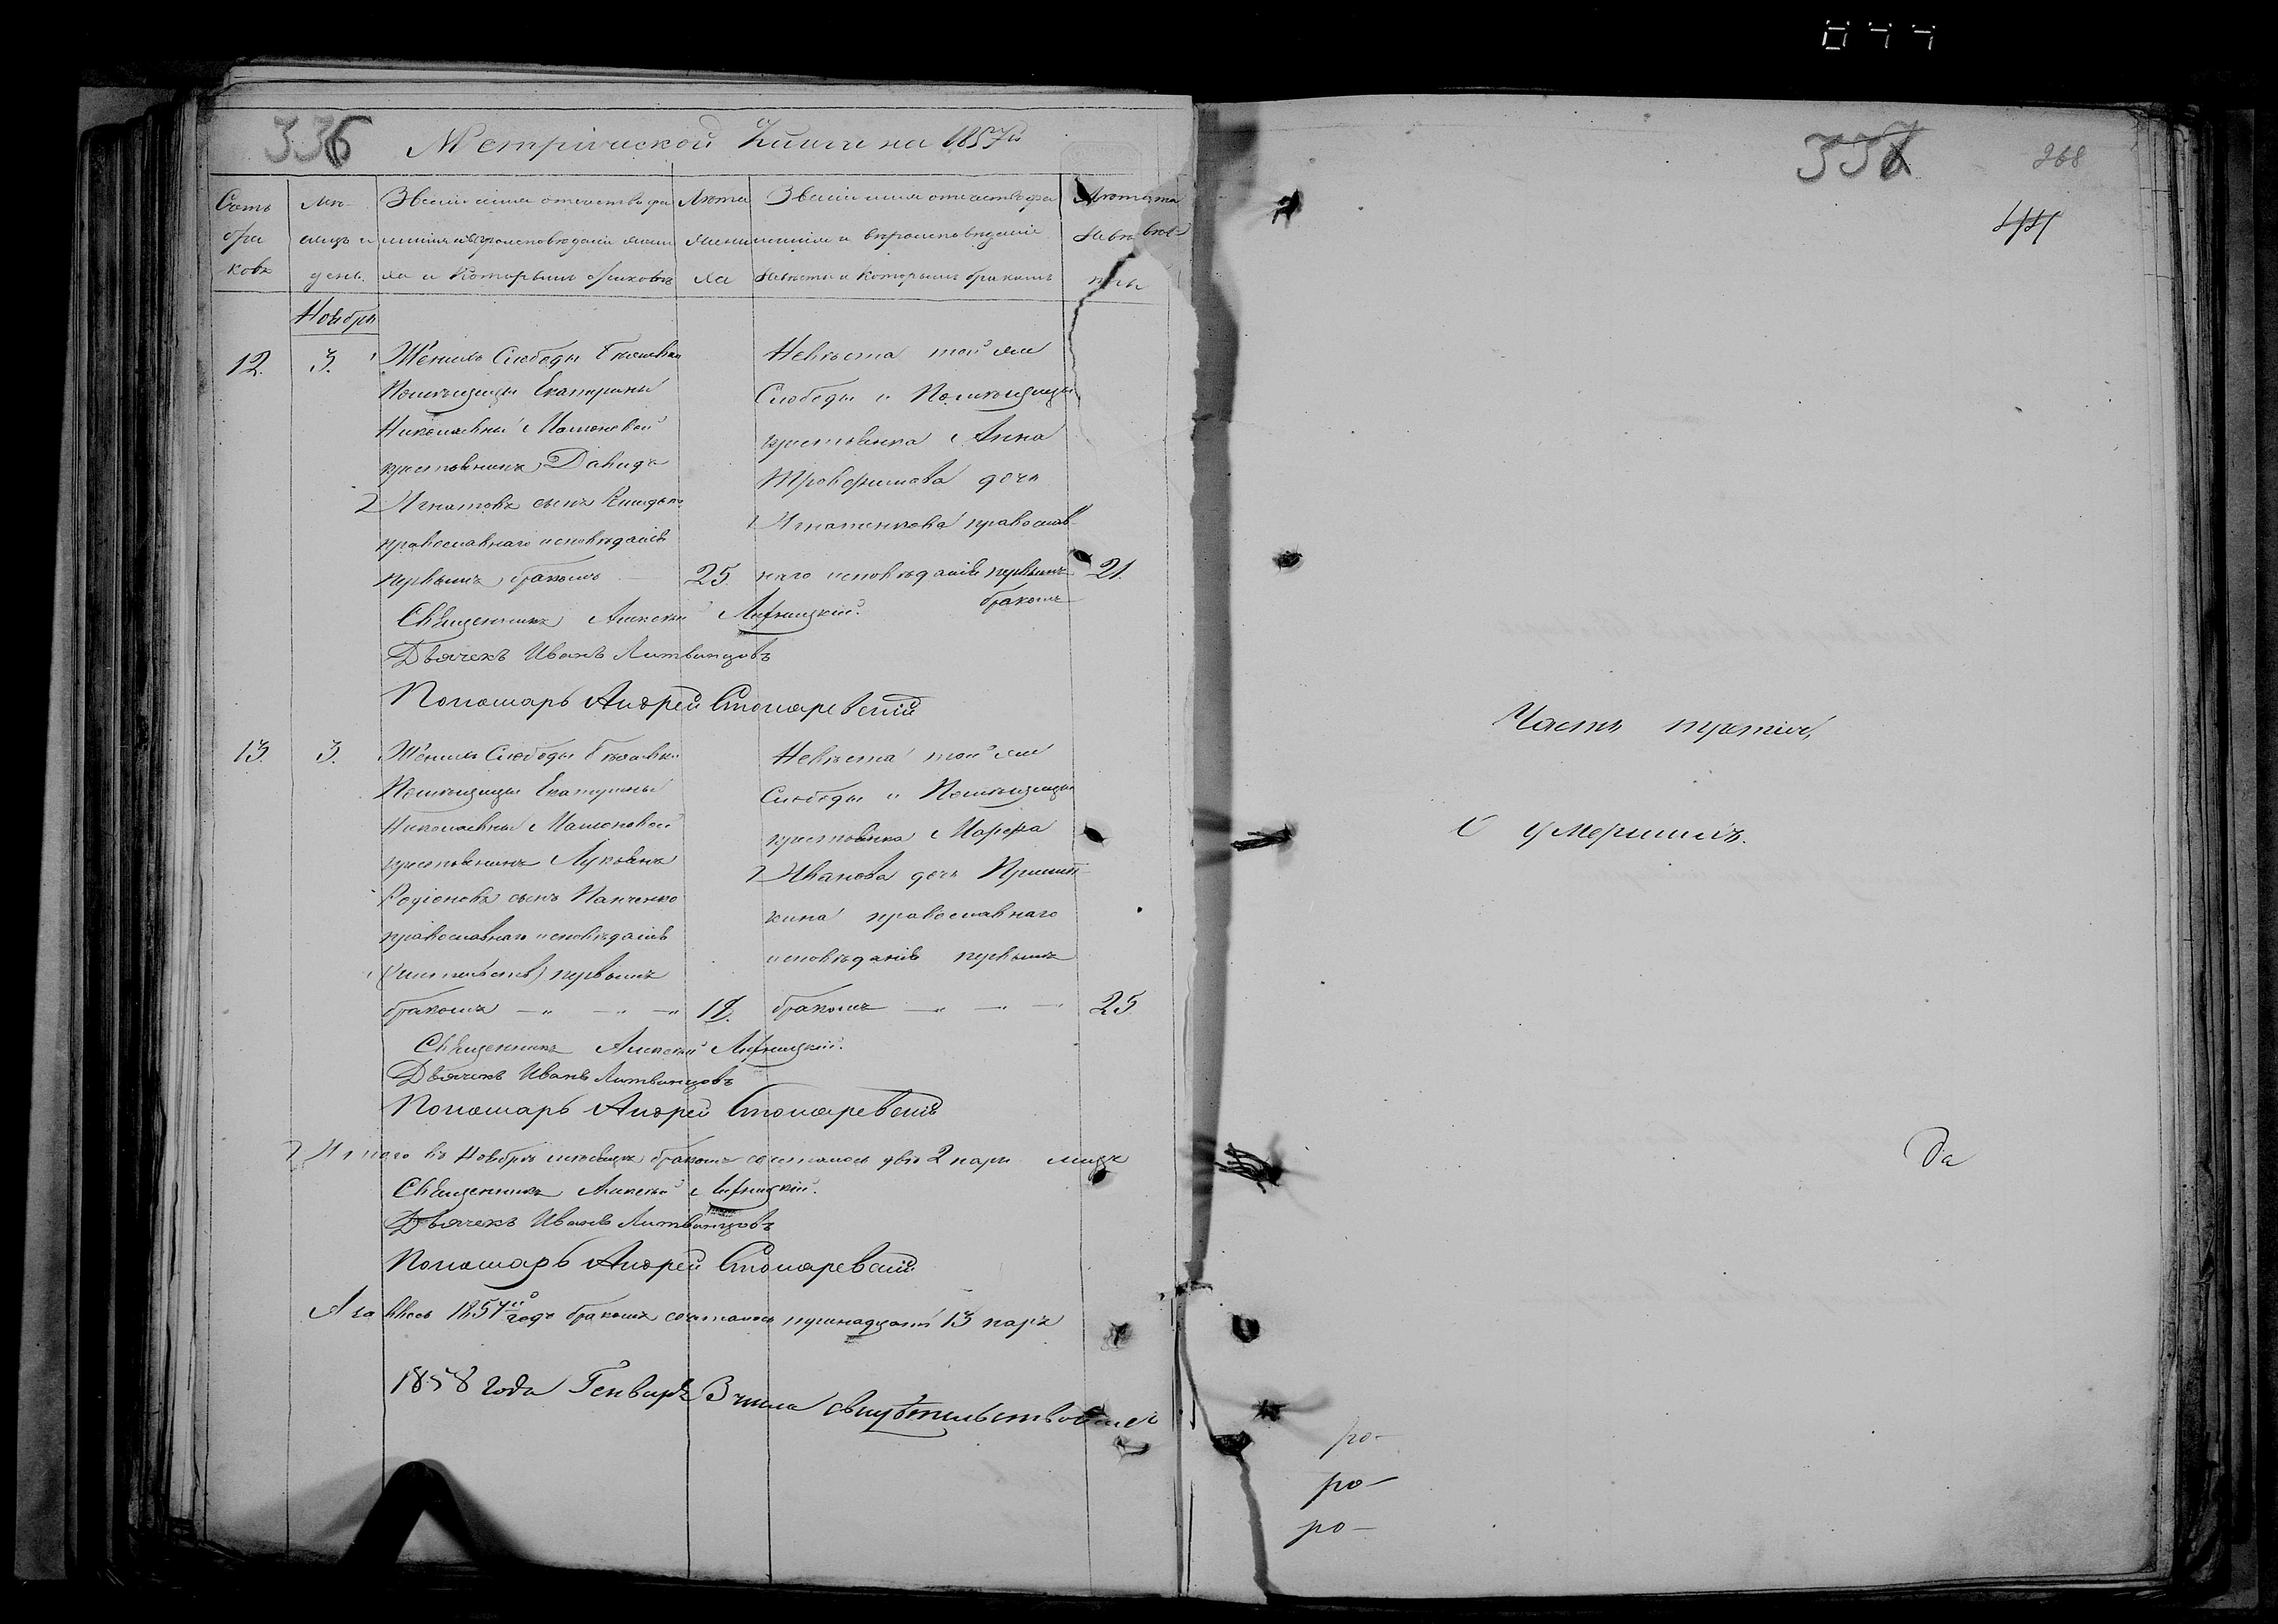 044
336
Метрической Книги на 1857й
Счетъ браковъ
Мѣсяцъ и день.
Званіе имя отчество фамилія и вѣроисповѣданіе жениха и которымъ бракомъ
Лѣта жениха
Званіе имя отчество фамилія и вѣроисповѣданіе невѣсты и которымъ бракомъ
Лѣта невѣсты
Ноябрь
12. 3. Женихъ Слободы
Помѣщицы Екатерины
Николаевны Мамоновой
крестьянинъ Давидъ
Игнатовъ сынъ
православнаго исповѣданія
первымъ бракомъ 25.
Невѣста той же
Слободы и Помѣщицы
крестьянка Анна
Трофимова дочь
Игнатенкова православ-
наго исповѣданія первымъ 21.
бракомъ
Священникъ Алексѣй
Дьячекъ Иванъ Литвинцовъ
Пономарь Андрей
13. 3. Женихъ Слободы
Помѣщицы Екатерины
Николаевны Мамоновой
крестьянинъ Лукьянъ
Родіоновъ сынъ Панченко
православнаго исповѣданія
первымъ
бракомъ — " — " — " 18.
Невѣста той же
Слободы и Помѣщицы
крестьянка Марфа
Иванова дочь
кина православнаго
исповѣданія первымъ
бракомъ — " — " — " 25
Священникъ Алексѣй
Дьячекъ Иванъ Литвинцовъ
Пономарь Андрей
Итого въ Ноябрѣ мѣсяцѣ бракомъ сочталось двѣ 2 пары лицъ
Священникъ Алексѣй
Дьячекъ Иванъ Литвинцовъ
Пономарь Андрей
А за весь 1857й годъ бракомъ сочталось тринадцать 13 паръ
1858 года Генваря 3 числа свидѣтельствовалъ
337
268
44
Часть третія,
О умершихъ.
Да
ро-
ро-
ро-